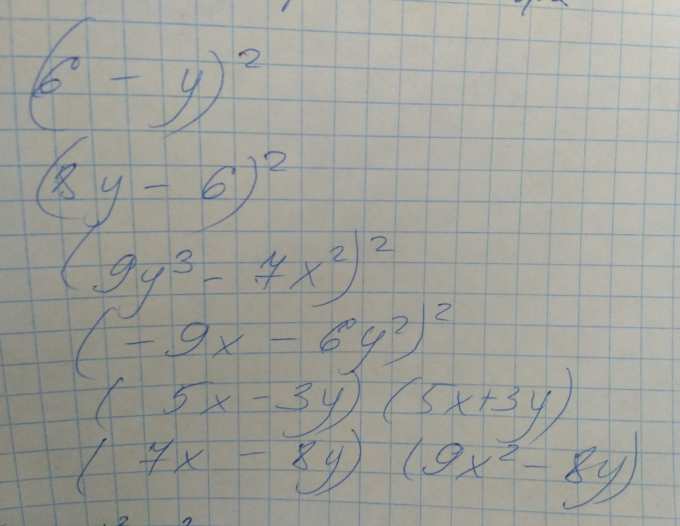 (6 - y)²
(8y - 6)²
(9y³ - 7x²)²
(-9x - 6y²)²
(5x - 3y) (5x+3y)
(7x - 8y) (9x² - 8y)